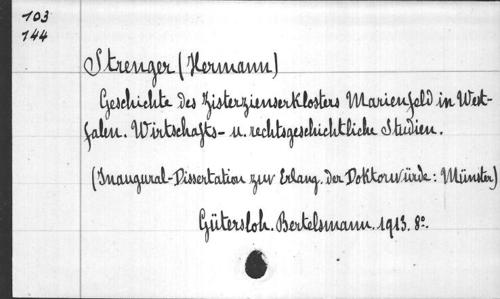 103
144
Strenger (Hermann)
Geschichte des Zisterzienserklosters Marienfeld in West-
falen. Wirtschafts- u. rechtsgeschichtliche Studien.
(Inaugural-Dissertation zur Erlang. der Doktorwürde: Münster)
Gütersloh. Bertelsmann. 1913. 8°.